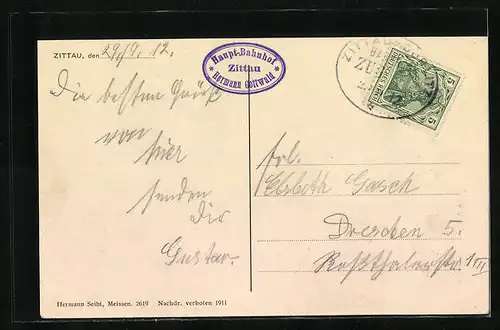 ZITTAU, den 29/9. 12.
Haupt-Bahnhof
Zittau
* Hermann Gottwald *
ZITTAU
5 5
Die besten Grüße
von
hier
senden
Dir
Gustav.
Frl.
Elsbeth Gasch
Dresden 5.
Roßthalerstr. 1 III
Hermann Seibt, Meissen. 2619 Nachdr. verboten 1911